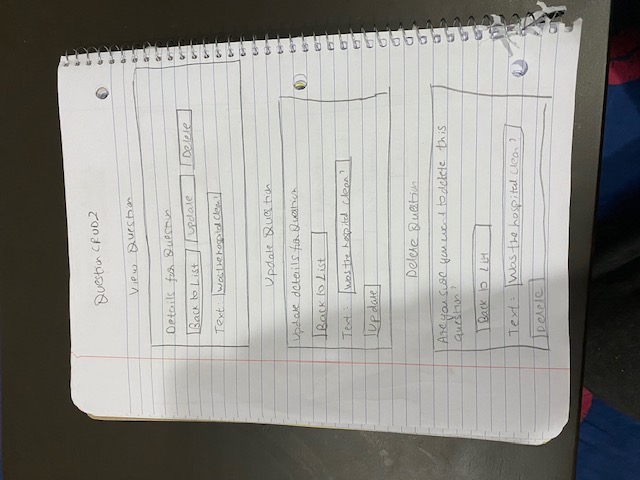 Question CRUD2
View Question
Details for Question
Back to List Update Delete
Text: Was the hospital clean?
Update Question
Update details for Question
Back to List
Text: Was the hospital clean?
Update
Delete Question
Are you sure you want to delete this
question?
Back to List
Text: Was the hospital clean?
Delete